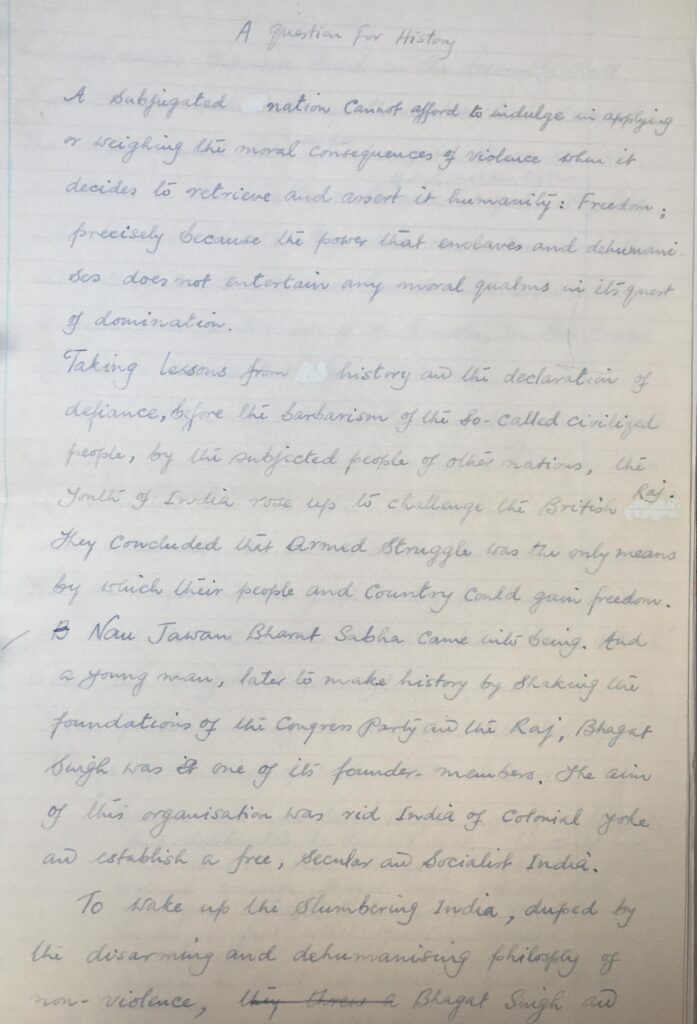 A Question For History
A subjugated nation cannot afford to indulge in applying
or weighing the moral consequences of violence when it
decides to retrieve and assert it humanity: Freedom;
precisely because the power that enslaves and dehumani
ses does not entertain any moral qualms in its quest
of domination.
Taking lessons from history and the declaration of
defiance, before the barbarism of the so-called civilized
people, by the subjected people of other nations, the
youth of India rose up to challenge the British Raj.
They concluded that Armed Struggle was the only means
by which their people and country could gain freedom.
Nau Jawan Bharat Sabha came into being. And
a young man, later to make history by shaking the
foundations of the Congress Party and the Raj, Bhagat
Singh was one of its founder-members. The aim
of this organisation was rid India of Colonial yoke
and establish a free, secular and Socialist India.
To wake up the slumbering India, duped by
the disarming and dehumanising philosfly of
non-violence, they threw a Bhagat Singh and